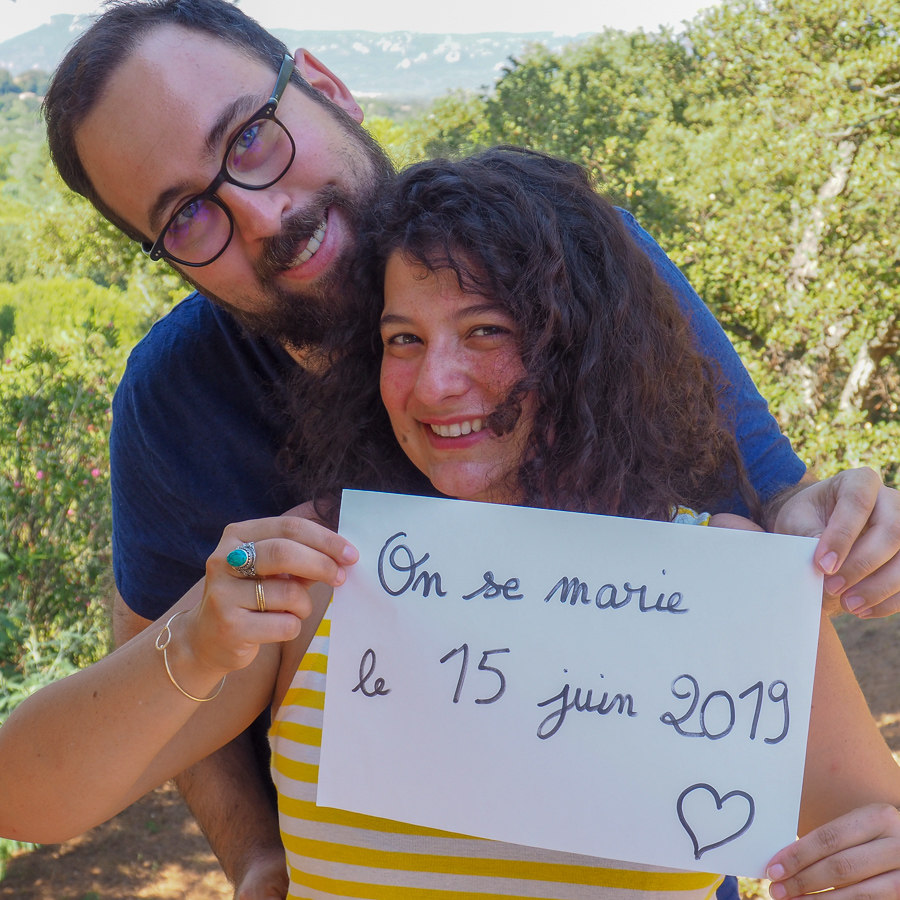 On se marie
le 15 juin 2019